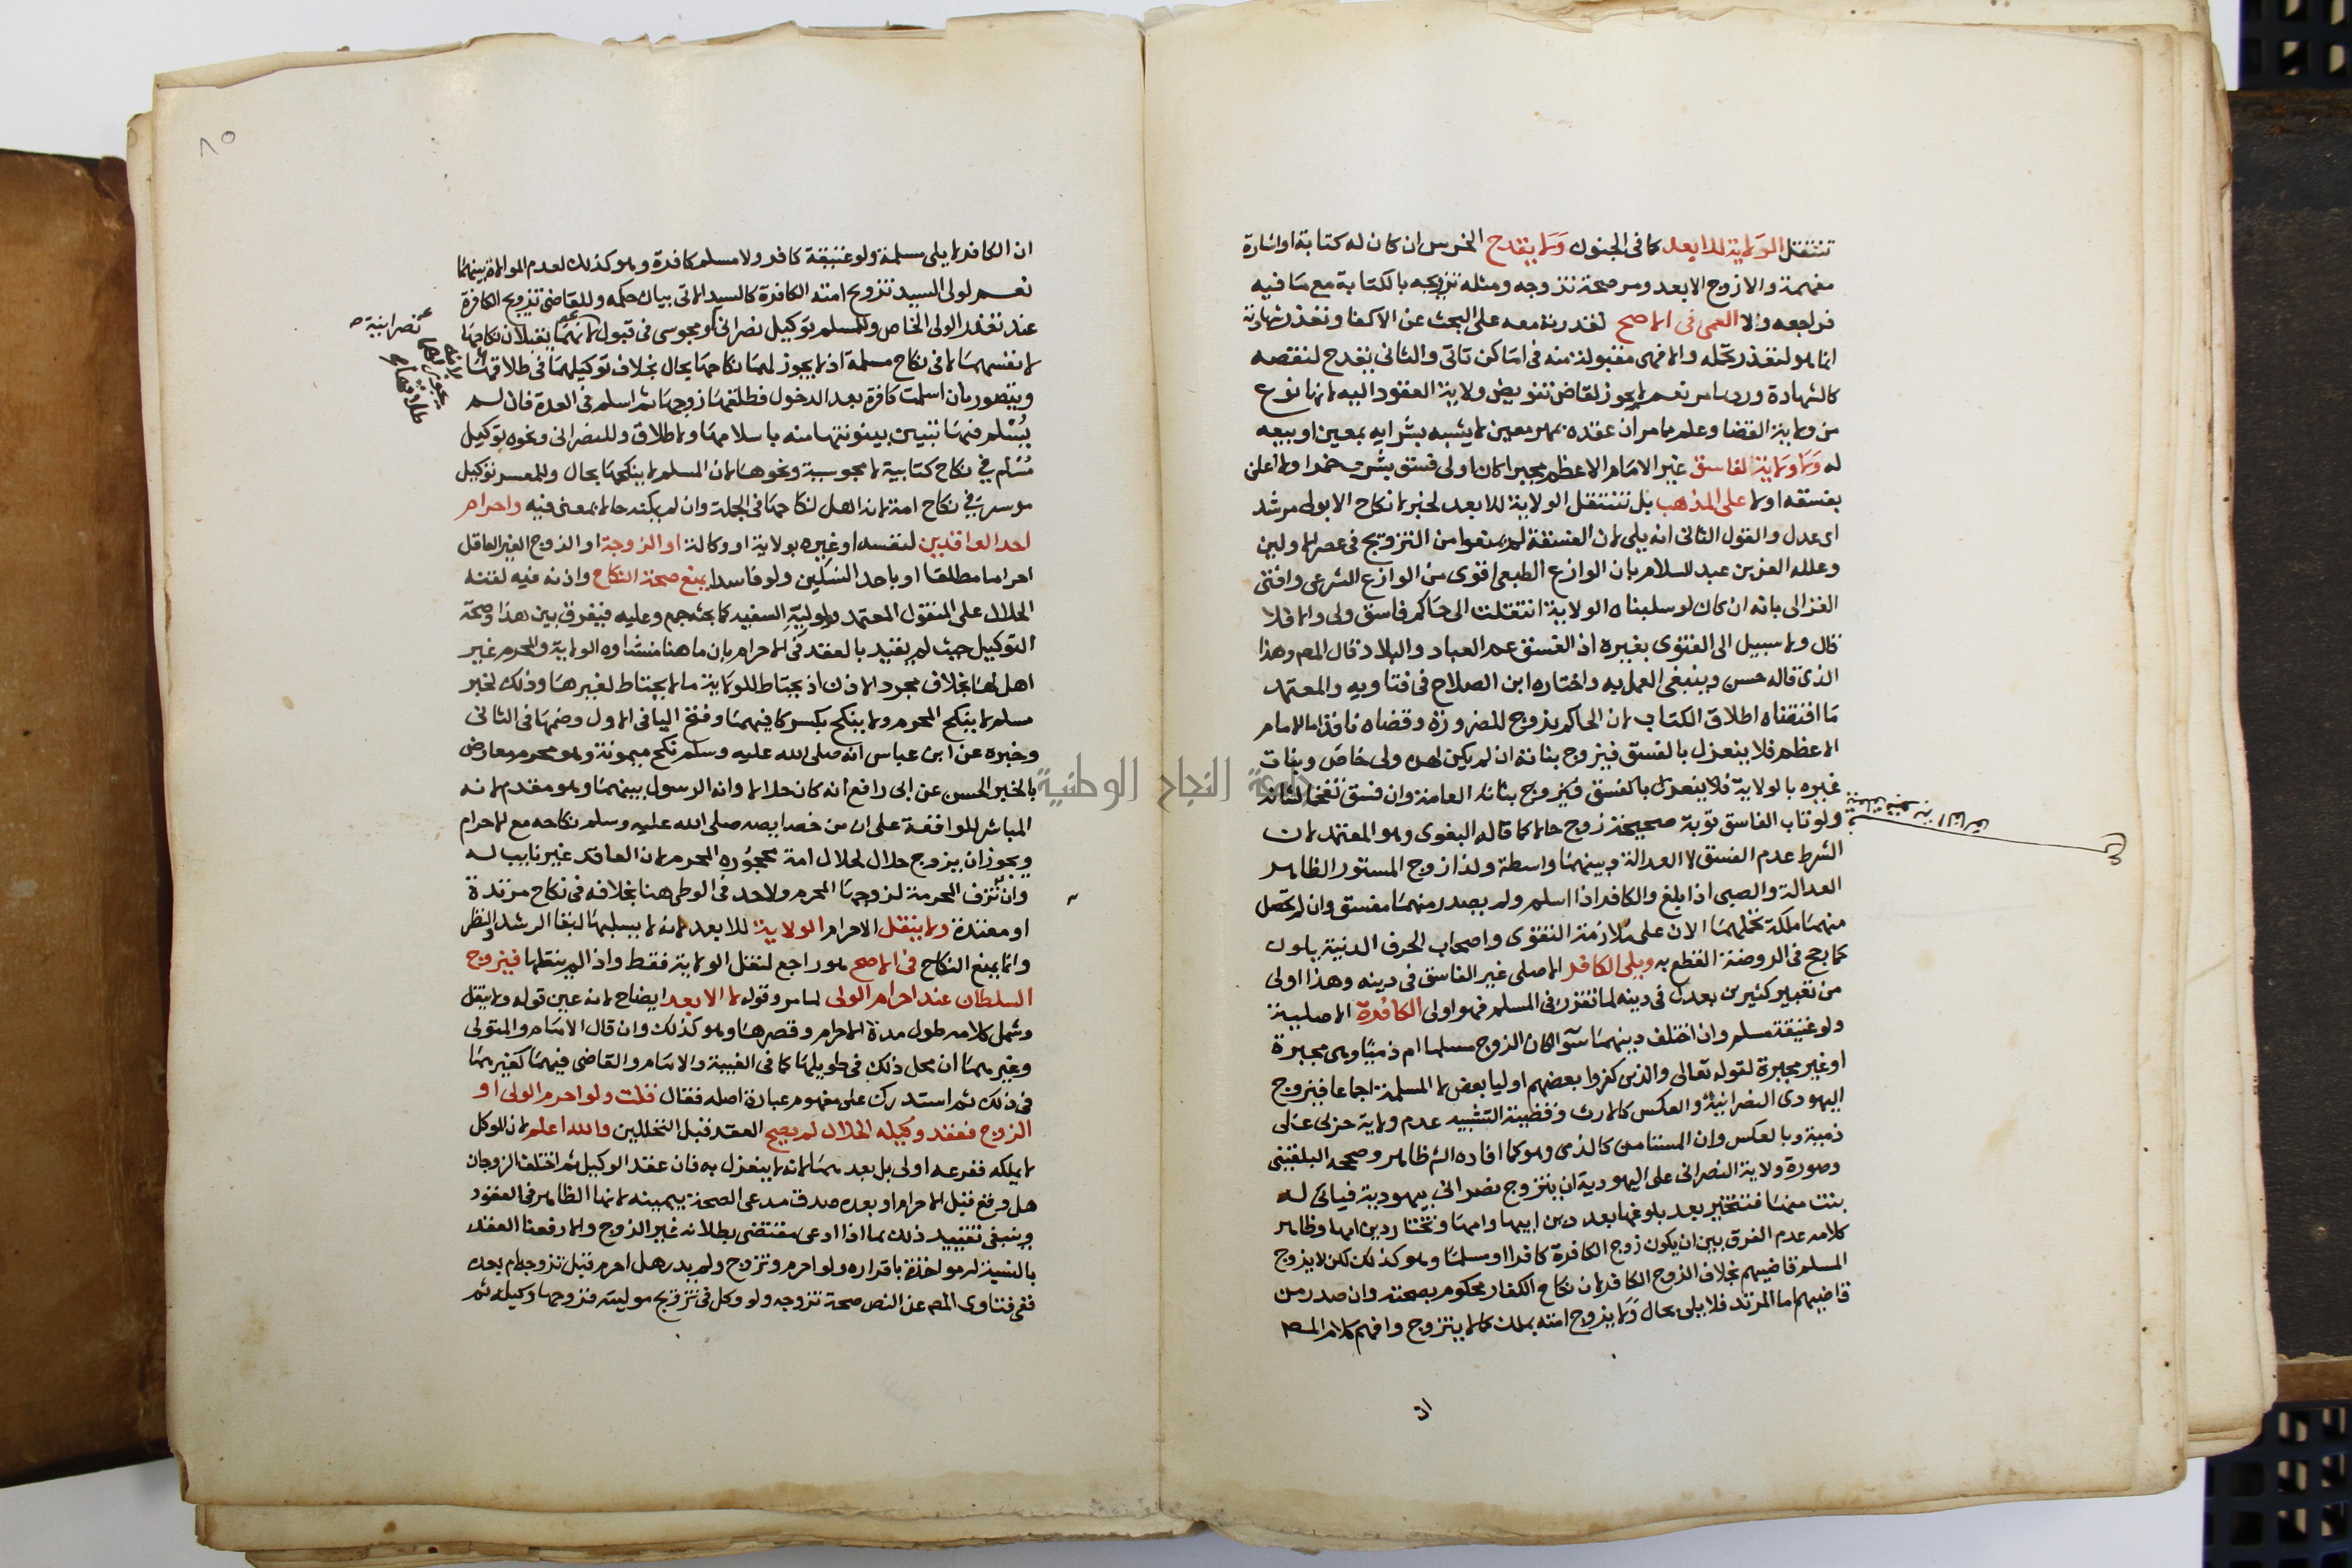 تنتقل الولاية للابعد كما فى الجنون ولا يقدح الخرس ان كان له كتابة او اشارة
مفهمة والا زوج الابعد ومر صحة تزوجه ومثله تزويجه بالكتابة مع ما فيه
فراجعه ولا العمى فى الاصح لقدرته معه على البحث عن الاكفا وتعذر شهادته
انما هو لتعذر تحمله والا فهى مقبولة منه فى اماكن تاتى والثانى يقدح لنقصه
كالشهادة ورد بما مر نعم لا يجوز لقاض تفويض ولاية العقود اليه لانها نوع
من ولاية القضا وعلم مما مر ان عقده بمهر معين لا يثبه بشرايه بمعين او بيعه
له ولا ولاية لفاسق غير الامام الاعظم مجبرا كان او لى فسق بشرب خمر او لا اعلن
بفسقه او لا على المذهب بل تنتقل الولاية للابعد لخبر لا نكاح الا بولى مرشد
اى عدل والقول الثانى انه يلى لان الفسقة لم يمنعوا من التزويج فى عصر الاولين
وعلله العز بن عبد السلام بان الوازع الطبعى اقوى من الوازع الشرعى وافتى
الغزالى بانه ان كان لو سلبناه الولاية انتقلت الى حاكم فاسق ولى والا فلا
قال ولا سبيل الى الفتوى بغيره اذ الفسق عم العباد والبلاد قال المصـ وهذا
الذى قاله حسن وينبغى العمل به واختاره ابن الصلاح فى فتاويه والمعتمد
ما اقتضاه اطلاق الكتاب لان الحاكم يزوج للضرورة وقضاه نافذ اما الامام
الاعظم فلا ينعزل بالفسق فيزوج بناته ان لم يكن لهن ولى خاص وبنات
غيره بالولاية فلا ينعزل بالفسق فيزوج بناته العامة وان فسق تفخيما لشانه
ولو تاب الفاسق توبة صحيحة زوج حالا كما قاله البغوى وهو المعتمد لان
الشرط عدم الفسق لا العدالة وبينهما واسطة ولذا زوج المستور الظاهر
العدالة والصبى اذا بلغ والكافر اذا اسلم ولم يصدر منهما مفسق وان لم تحصل
منهما ملكة تحملهما الان على ملازمة التقوى واصحاب الحرف الدنية يلون
كما رجح فى الروضة القطع به ويلى الكافر الاصلى غير الفاسق فى دينه وهذا اولى
من تعبير كثيرين بعدل فى دينه لما تقرر فى المسلم فهو اولى الكافرة الاصلية
ولو عتيقة مسلم وان اختلف دينهما سوآ اكان الزوج مسلما ام ذميا وهى مجبرة
او غير مجبرة لقوله تعالى والذين كفروا بعضهم اوليا بعض لا المسلمة اجماعا فيزوج
اليهودى النصرانية والعكس كالارث وقضية التشبيه عدم ولاية حربى على
ذمية وبالعكس وان المستامن كالذمى وهو كما افاده الشـ ظاهر وصححه البلقينى
وصورة ولاية النصرانى على اليهودية ان يتزوج نصرانى بيهودية فياتى له
بنت منها فتتخير بعد بلوغها بعد دين ابيها وامها وتختار دين امها وظاهر
كلامه عدم الفرق بين ان يكون زوج الكافرة كافرا او مسلما وهو كذلك لكن لا يزوج
المسلم قاضيهم بخلاف الزوج الكافر لان نكاح الكفار محكوم بصحته وان صدر من
قاضيهم اما المرتد فلا يلى بحال ولا يزوج امته بملك كما لا يتزوج وافهم كلام المصـ
ان
٨٥
ان الكافر لا يلى مسلمة ولو عتيقة كافر ولا مسلم كافرة وهو كذلك لعدم الموالاة بينهما
نعم لولى السيد تزويج امته الكافرة كالسيد الاتى بيان حكمه وللقاضى تزويج الكافرة
عند تعذر الولى الخاص وللمسلم توكيل نصرانى او مجوسى فى قبول لانهما يقبلان نكاحها
نصرانية
لانفسهما لا فى نكاح مسلمة اذ لا يجوز لهما نكاحها بحال بخلاف توكيلهما فى طلاقها
ويتصور بان اسلمت كافرة بعد الدخول فطلقها زوجها ثم اسلم فى العدة فان لم
يسلم فيها تبين بينونتها منه باسلامها ولا طلاق وللنصرانى ونحوه توكيل
مسلم فى نكاح كتابية لا مجوسية ونحوها لان المسلم لا ينكحها بحال وللمعسر توكيل
موسر فى نكاح امة لانه اهل لنكاحها فى الجملة وان لم يمكنه حالا بمعنى فيه واحرام
احد العاقدين لنفسه او غيره بولاية او وكالة او الزوجة او الزوج الغير العاقل
احراما مطلقا او باحد النسكين ولو فاسدا يمنع صحة النكاح واذنه فيه لقنه
الحلال على المنقول المعتمد ولوليه السفيه كما بحثه جمع وعليه فيفرق بين هذا وصحة
التوكيل حيث لم يقيد بالعقد فى الاحرام بان ما هنا منشاوه الولاية والمحرم غير
اهل لها بخلاف مجرد الاذن اذ يحتاط للولاية ما لا يحتاط لغيرها وذلك لخبر
مسلم لا ينكح المحرم ولا ينكح بكسر كافيهما وفتح اليا فى الاول وضمها فى الثانى
وخبره عن ابن عباس انه صلى الله عليه وسلم نكح ميمونة وهو محرم معارض
بالخبر الحسن عن ابى رافع انه كان حلالا وانه الرسول بينهما وهو مقدم لانه
المباشر للواقعة على ان من خصايصه صلى الله عليه وسلم نكاحه مع الاحرام
ويجوز ان يزوج حلال لحلال امة محجوره المحرم لان العاقد غير نايب له
وان تزف المحرمة لزوجها المحرم ولا حد فى الوطى هنا بخلافه فى نكاح مرتدة
او معتدة ولا ينقل الاحرام الولاية للابعد لانه لا يسلبها لبقا الرشد والنظر
وانما يمنع النكاح فى الاصح هو راجع لنقل الولاية فقط واذا لم ينقلها فيزوج
السلطان عند احرام الولى لما مر وقوله لا الابعد ايضاح لانه عين قوله ولا ينقل
وشمل كلامه طول مدة الاحرام وقصرها وهو كذلك وان قال الامام والمتولى
وغيرهما ان محل ذلك فى طويلها كما فى الغيبة والامام والقاضى فيهما كغيرهما
فى ذلك ثم استدرك على مفهوم عبارة اصله فقال قلت ولو احرم الولى او
الزوج فعقد وكيله الحلال لم يصح العقد قبل التحللين والله اعلم لان الموكل
لا يملكه ففرعه اولى بل بعدهما لانه لا ينعزل به فان عقد الوكيل ثم اختلف الزوجان
هل وقع قبل الاحرام او بعده صدق مدعى الصحة بيمينه لانها الظاهر فى العقود
وينبغى تقييد ذلك بما اذا ادعى مقتضى بطلانه غير الزوج والا رفعنا العقد
بالنسبة له مواخذة باقراره ولو احرم وتزوج ولم يدر هل احرم قبل تزوجه ام بعده
ففى فتاوى المصـ عن النص صحة تزوجه ولو وكل فى تزويج موليته فزوجها وكيله ثم
جامعة النجاح الوطنية